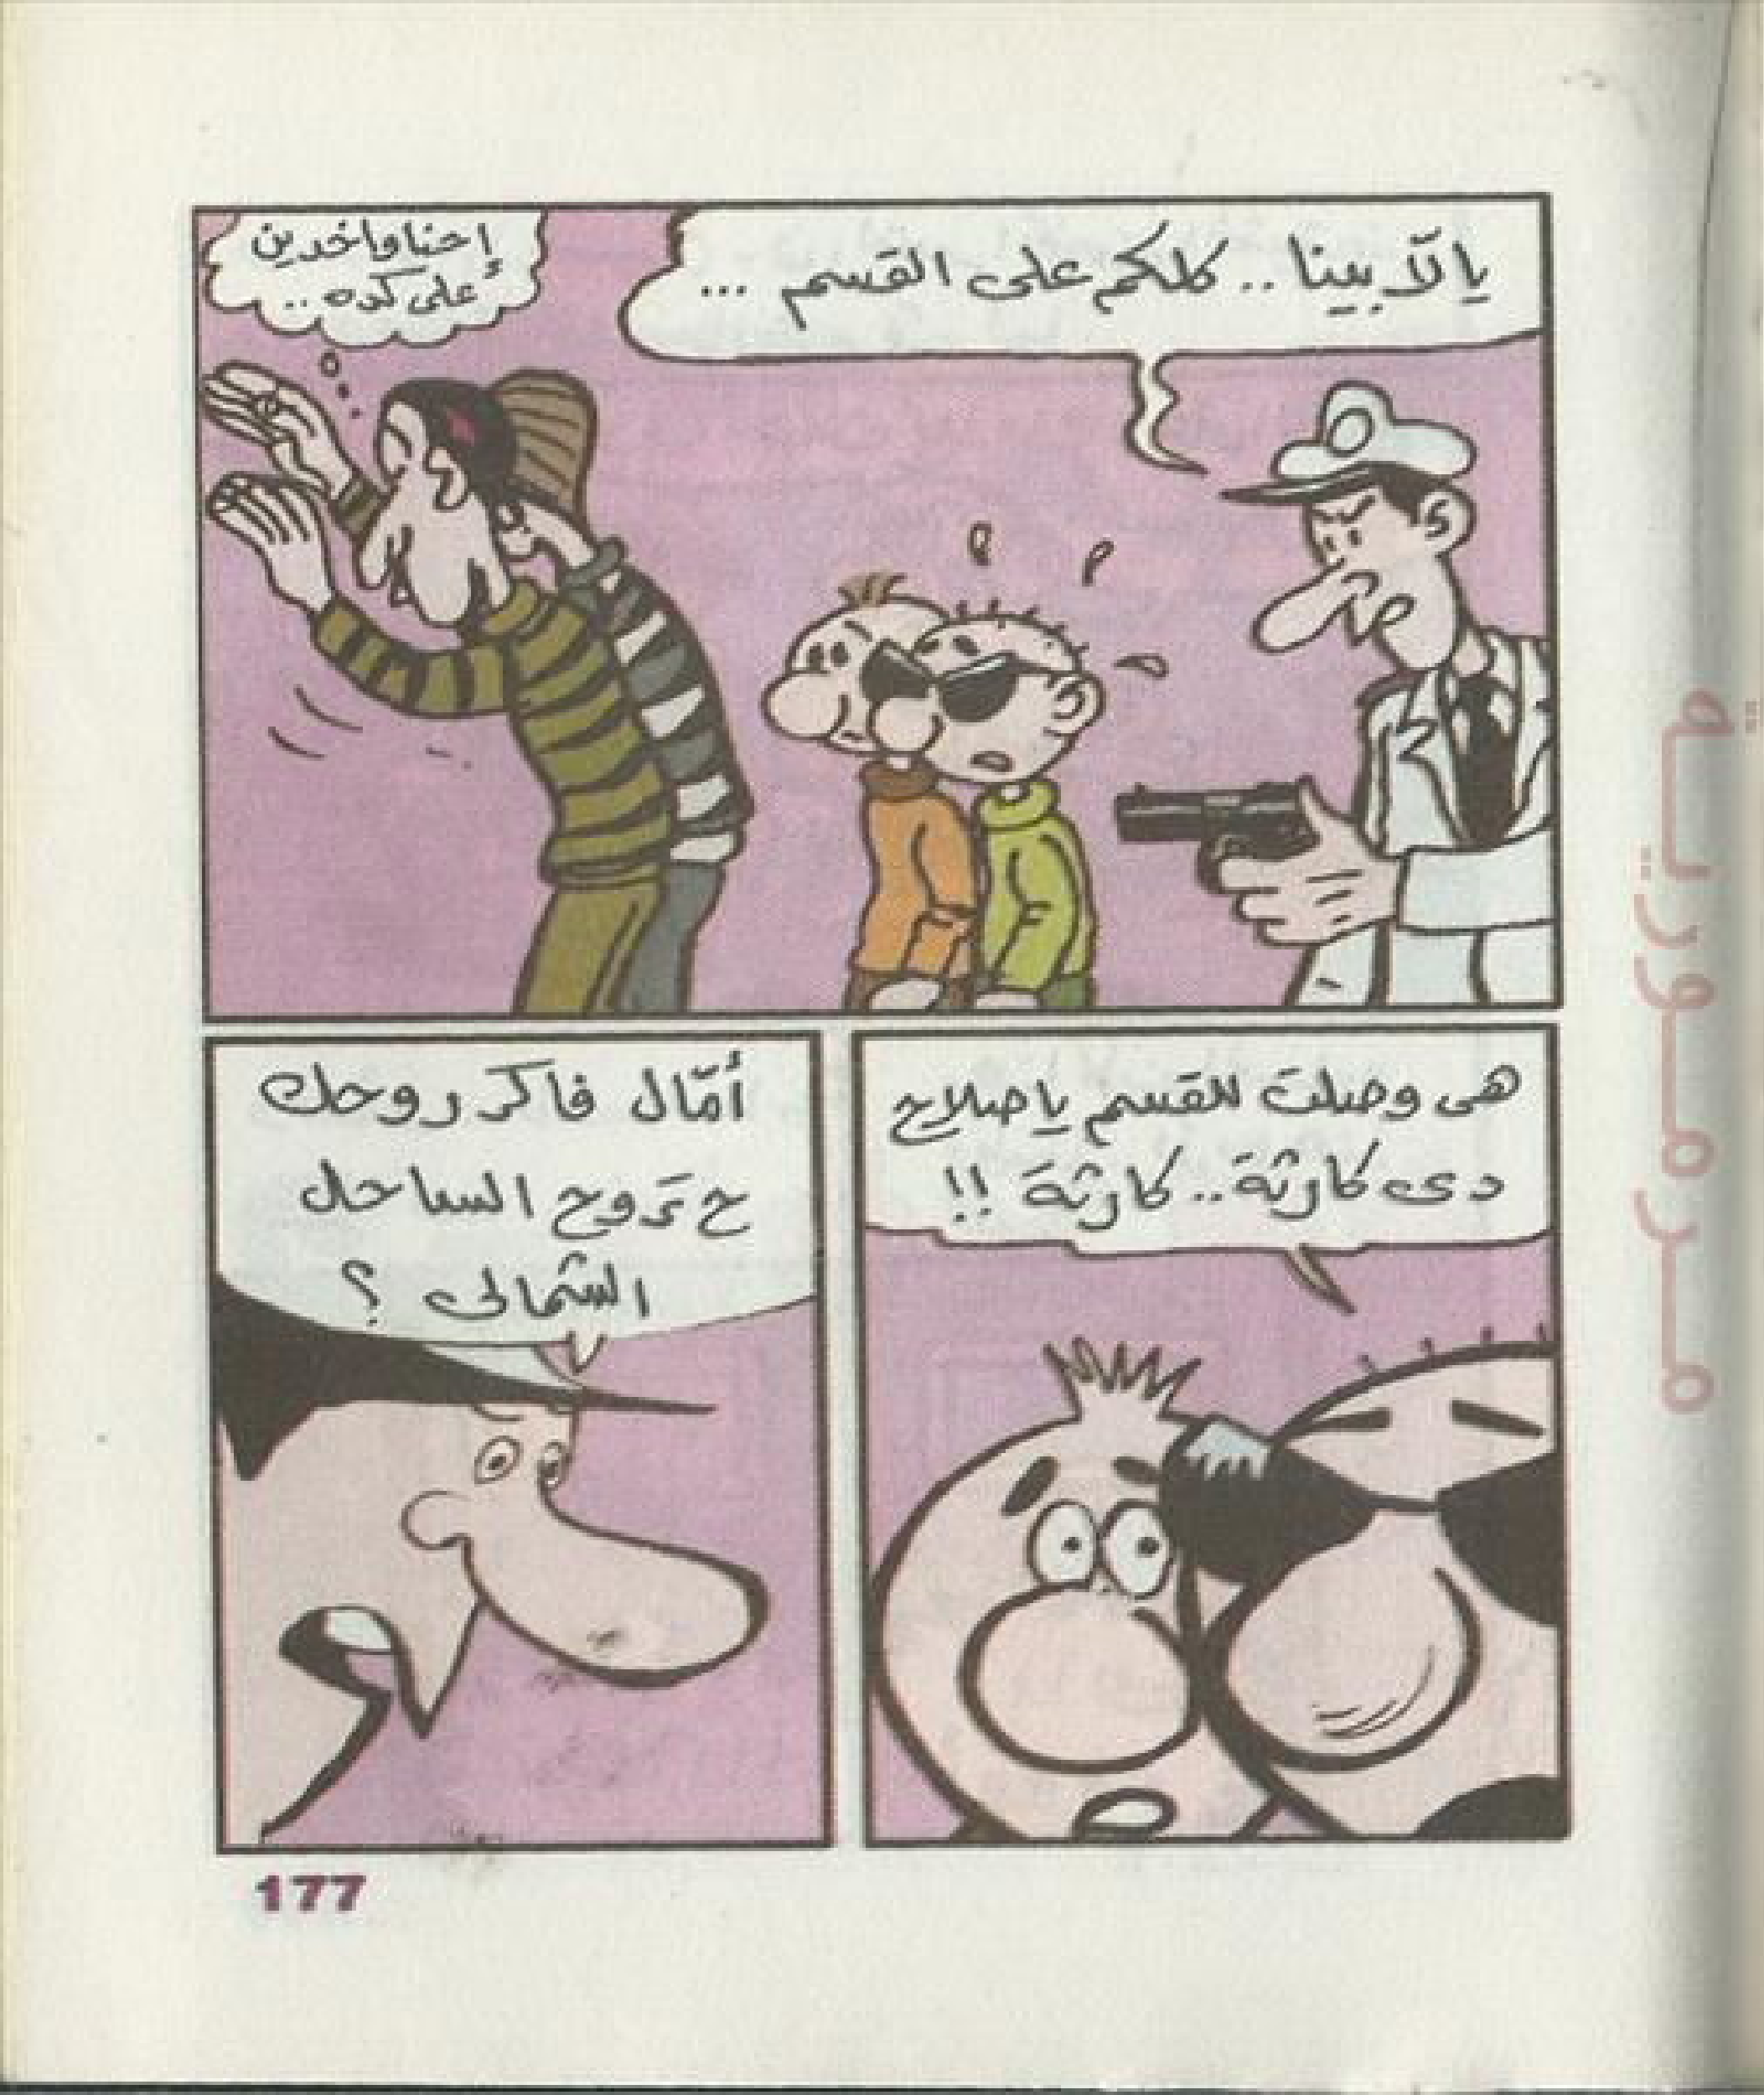 يالّا بينا .. كلكم على القسم ...
إحنا واخدين
على كده ..
هى وصلت للقسم يا صلاح
دى كارثة .. كارثة !!
أمّال فاكر روحك
ح تروح الساحل
الشمالى ؟
177